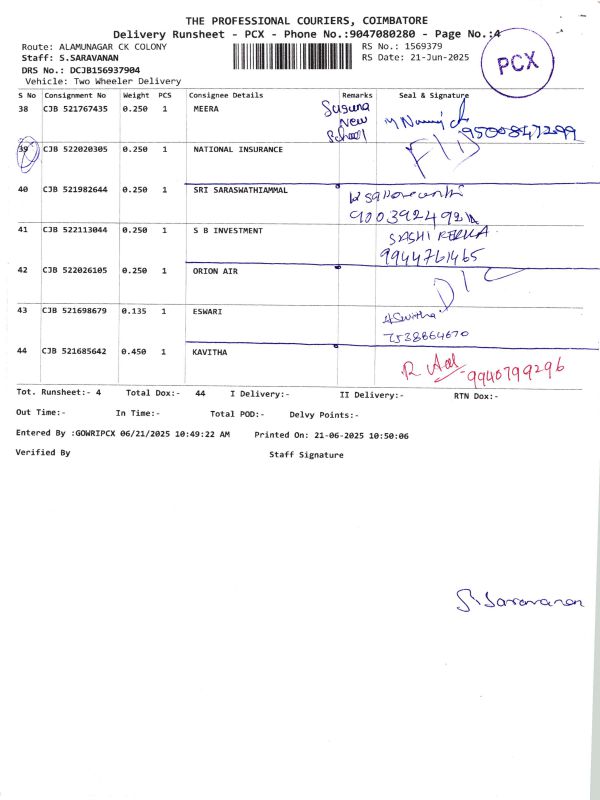 THE PROFESSIONAL COURIERS, COIMBATORE
Delivery Runsheet - PCX - Phone No.:9047080280 - Page No.:4
Route: ALAMUNAGAR CK COLONY
RS No.: 1569379
Staff: S.SARAVANAN
RS Date: 21-Jun-2025
DRS No.: DCJB156937904
Vehicle: Two Wheeler Delivery
PCX
S No Consignment No Weight PCS Consignee Details Remarks Seal & Signature
38 CJB 521767435 0.250 1 MEERA
Suguna New School
9500847299
39 CJB 522020305 0.250 1 NATIONAL INSURANCE
40 CJB 521982644 0.250 1 SRI SARASWATHIAMMAL
9003924921
41 CJB 522113044 0.250 1 S B INVESTMENT
SASHI REKKA
9944761465
42 CJB 522026105 0.250 1 ORION AIR
43 CJB 521698679 0.135 1 ESWARI
7538864670
44 CJB 521685642 0.450 1 KAVITHA
9940799296
Tot. Runsheet:- 4 Total Dox:- 44 I Delivery:- II Delivery:- RTN Dox:-
Out Time:- In Time:- Total POD:- Delvy Points:-
Entered By :GOWRIPCX 06/21/2025 10:49:22 AM Printed On: 21-06-2025 10:50:06
Verified By Staff Signature
S. Saravanan